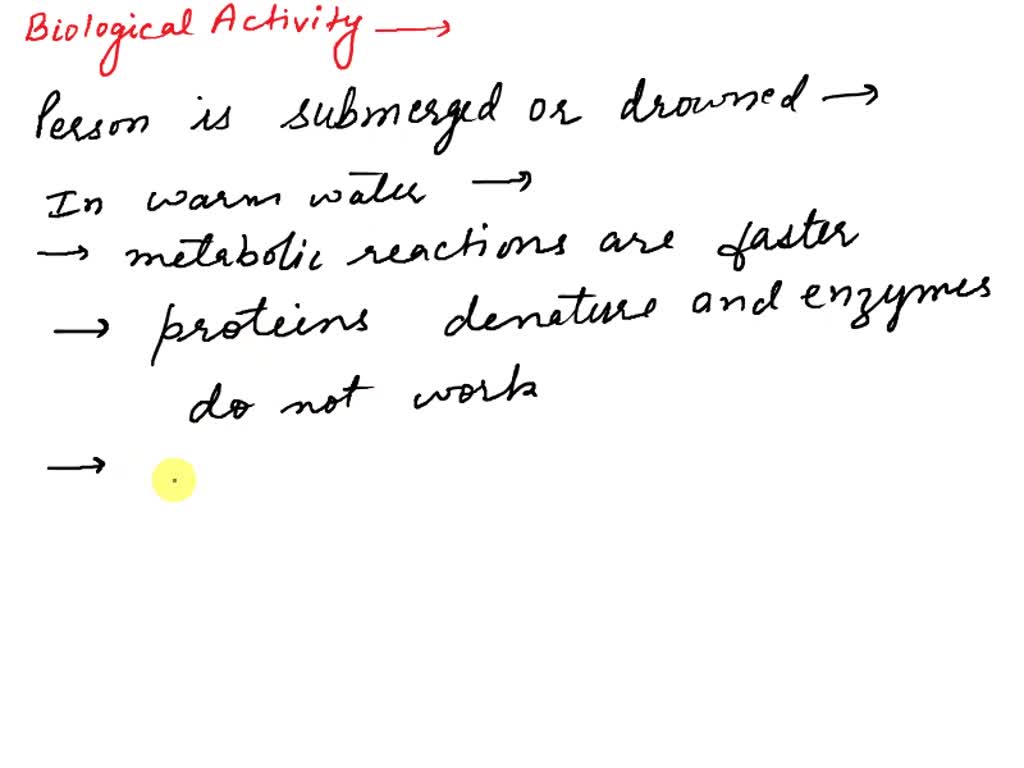 Biological Activity →
Person is submerged or drowned →
In warm water →
→ metabolic reactions are faster
→ proteins denature and enzymes
do not work
→